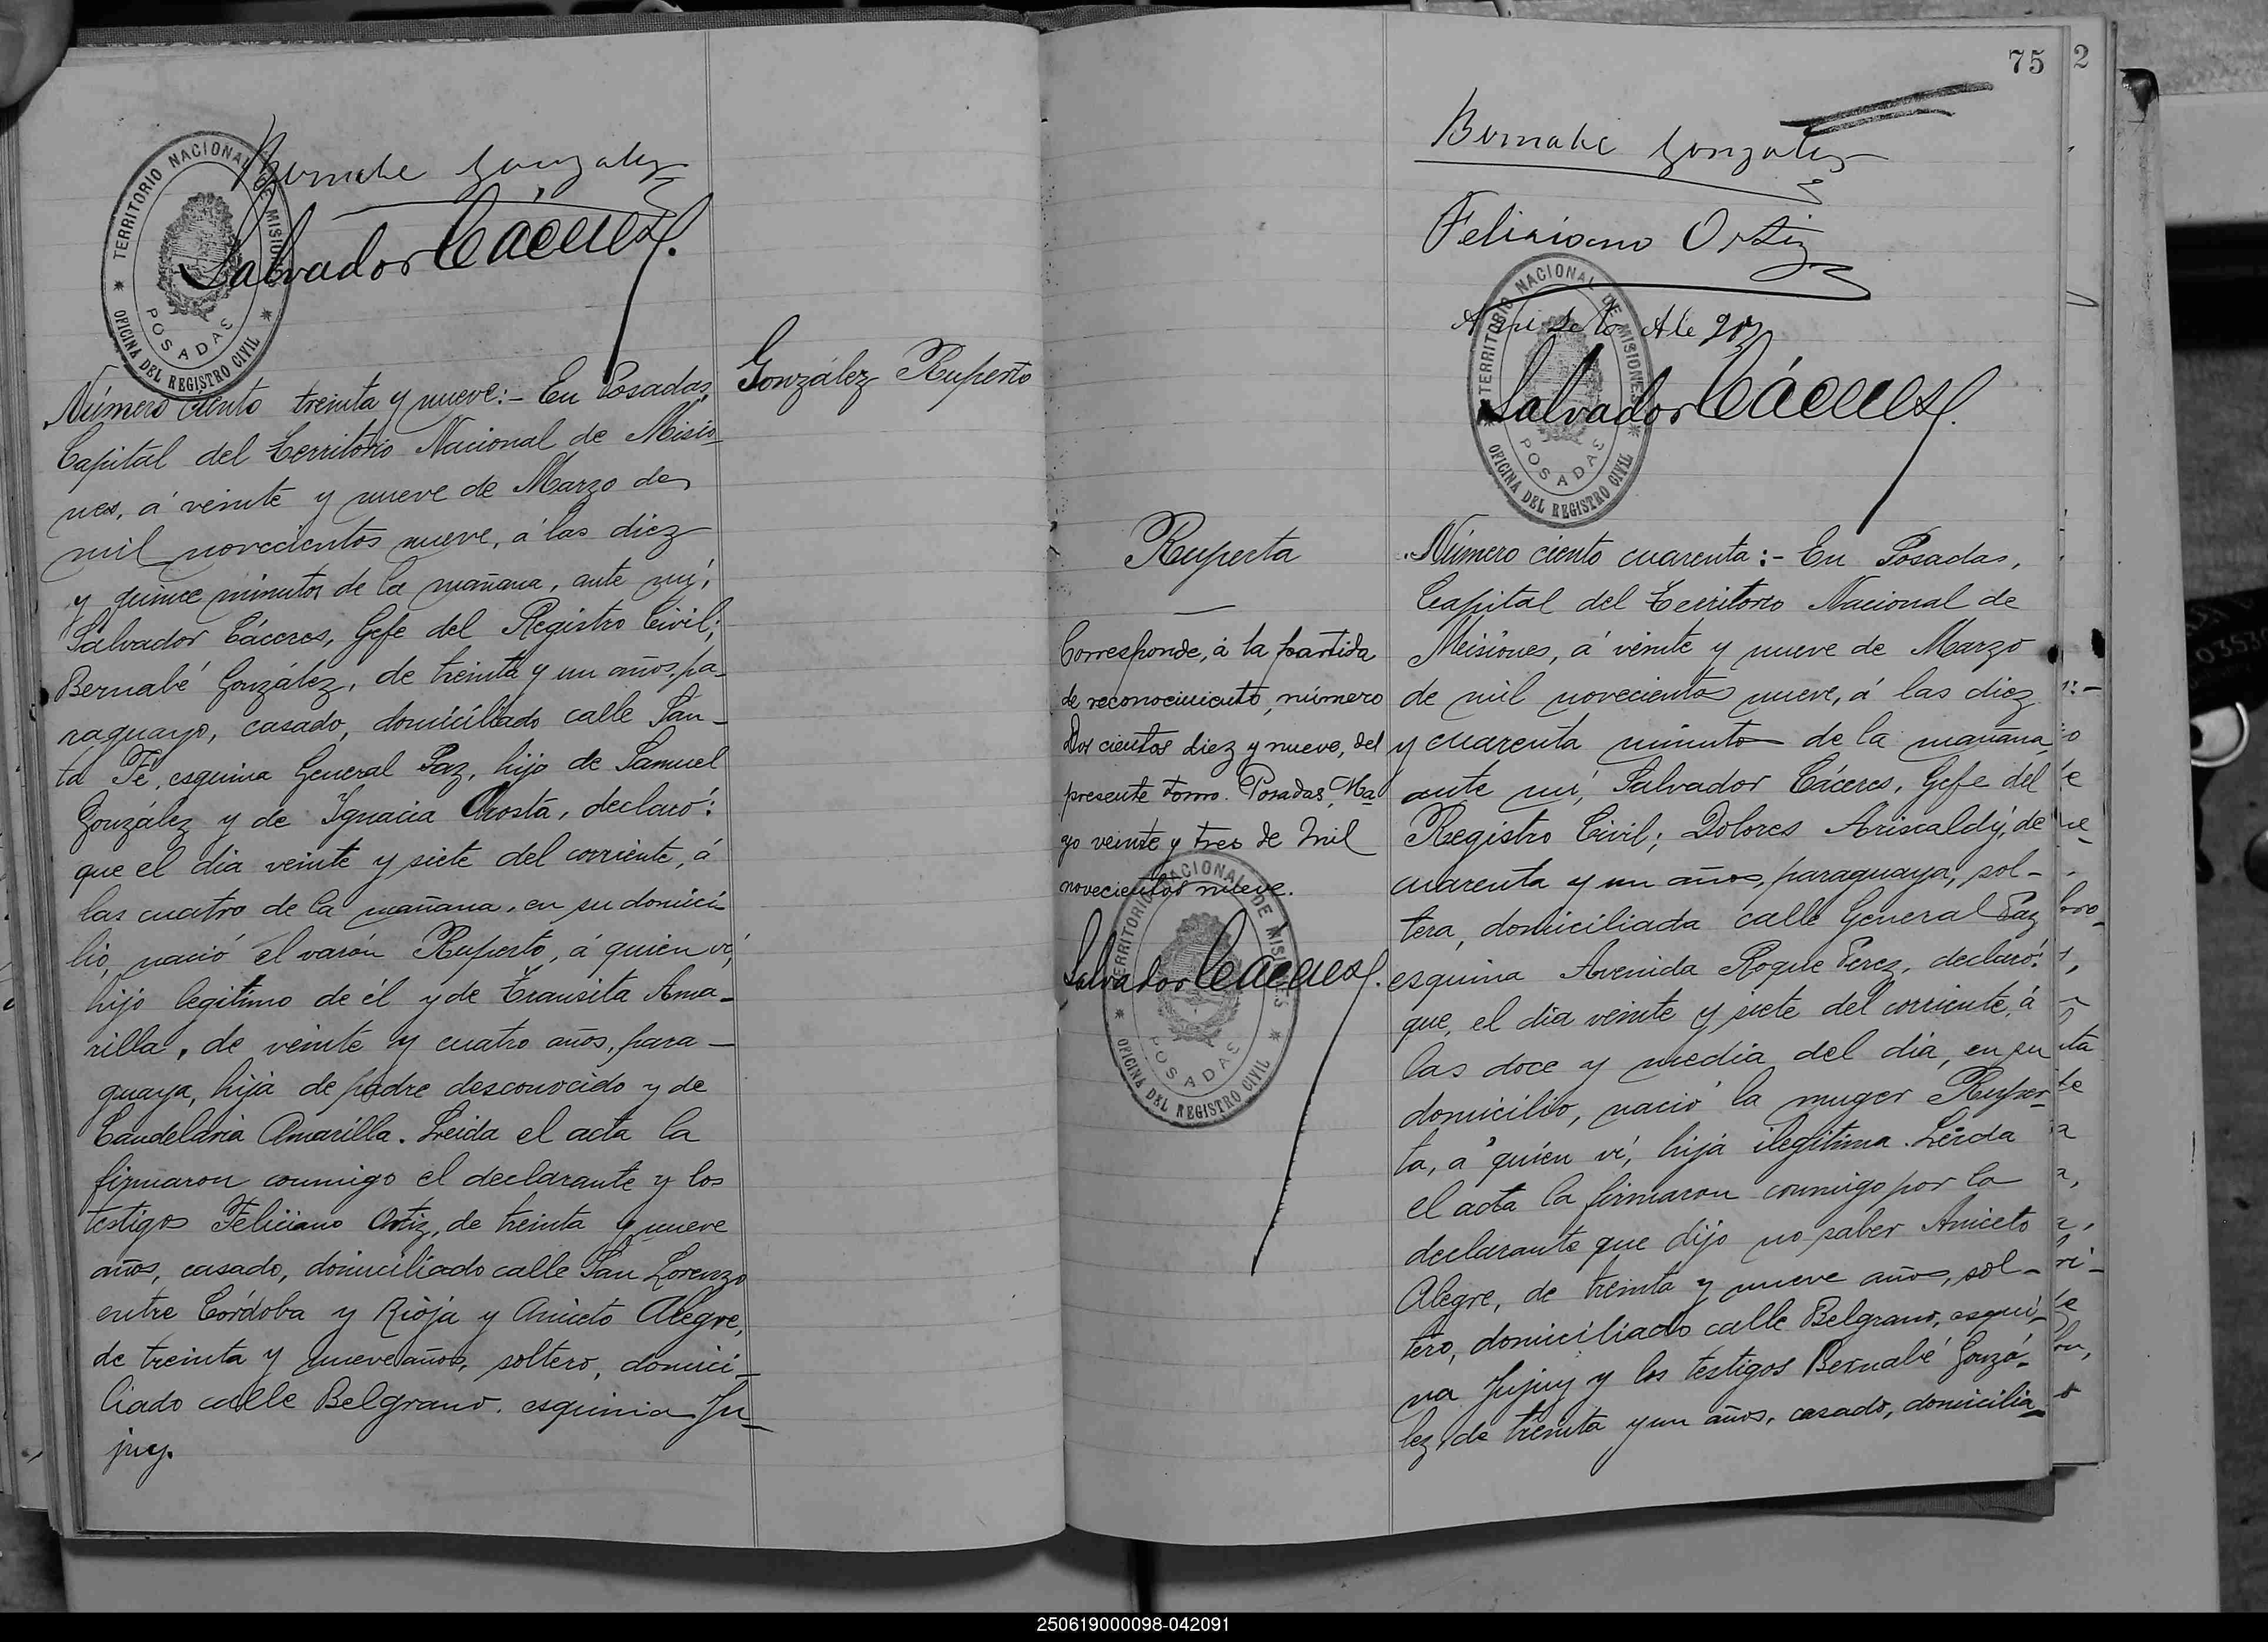 Bernabe Gonzalez
Salvador Cáceres.
TERRITORIO NACIONAL DE MISIONES
POSADAS
OFICINA DEL REGISTRO CIVIL
González Ruperto
Número ciento treinta y nueve:- En Posadas,
Capital del Territorio Nacional de Misio-
nes, á veinte y nueve de Marzo de
mil novecientos nueve, á las diez
y quince minutos de la mañana, ante mí,
Salvador Cáceres, Gefe del Registro Civil;
Bernabé González, de treinta y un años, pa-
raguayo, casado, domiciliado calle San-
ta Fé, esquina General Paz, hijo de Samuel
González y de Ignacia Acosta, declaró:
que el dia veinte y siete del corriente, á
las cuatro de la mañana, en su domici-
lio, nació el varón Ruperto, á quien ví,
hijo legitimo de él y de Transita Ama-
rilla, de veinte y cuatro años, para-
guaya, hija de padre desconocido y de
Candelaria Amarilla. Leida el acta la
firmaron conmigo el declarante y los
testigos Feliciano Ortiz, de treinta y nueve
años, casado, domiciliado calle San Lorenzo
entre Córdoba y Rioja y Aniceto Alegre,
de treinta y nueve años, soltero, domici-
liado calle Belgrano, esquina Ju-
juy.
75
2
Bernabe Gonzalez
Feliciano Ortiz
Aniseto Alegre
Salvador Cáceres.
TERRITORIO NACIONAL DE MISIONES
POSADAS
OFICINA DEL REGISTRO CIVIL
Ruperta
Corresponde, á la partida
de reconocimiento, número
Dos cientos diez y nueve, del
presente tomo. Posadas, Ma-
yo veinte y tres de mil
novecientos nueve.
Salvador Cáceres.
TERRITORIO NACIONAL DE MISIONES
POSADAS
OFICINA DEL REGISTRO CIVIL
Número ciento cuarenta:- En Posadas,
Capital del Territorio Nacional de
Misiones, á veinte y nueve de Marzo
de mil novecientos nueve, á las diez
y cuarenta minutos de la mañana
ante mí, Salvador Cáceres, Gefe del
Registro Civil; Dolores Arisaldy, de
cuarenta y un años, paraguaya, sol-
tera, domiciliada calle General Paz
esquina Avenida Roque Perez, declaró:
que, el dia veinte y siete del corriente, á
las doce y media del dia, en su
domicilio, nació la muger Ruper-
ta, á quien ví, hija ilegitima. Leida
el acta la firmaron conmigo por la
declarante que dijo no saber Aniceto
Alegre, de treinta y nueve años, sol-
tero, domiciliado calle Belgrano, esqui-
na Jujuy y los testigos Bernabé Gonzá-
lez, de treinta y un años, casado, domicilia-
250619000098-042091